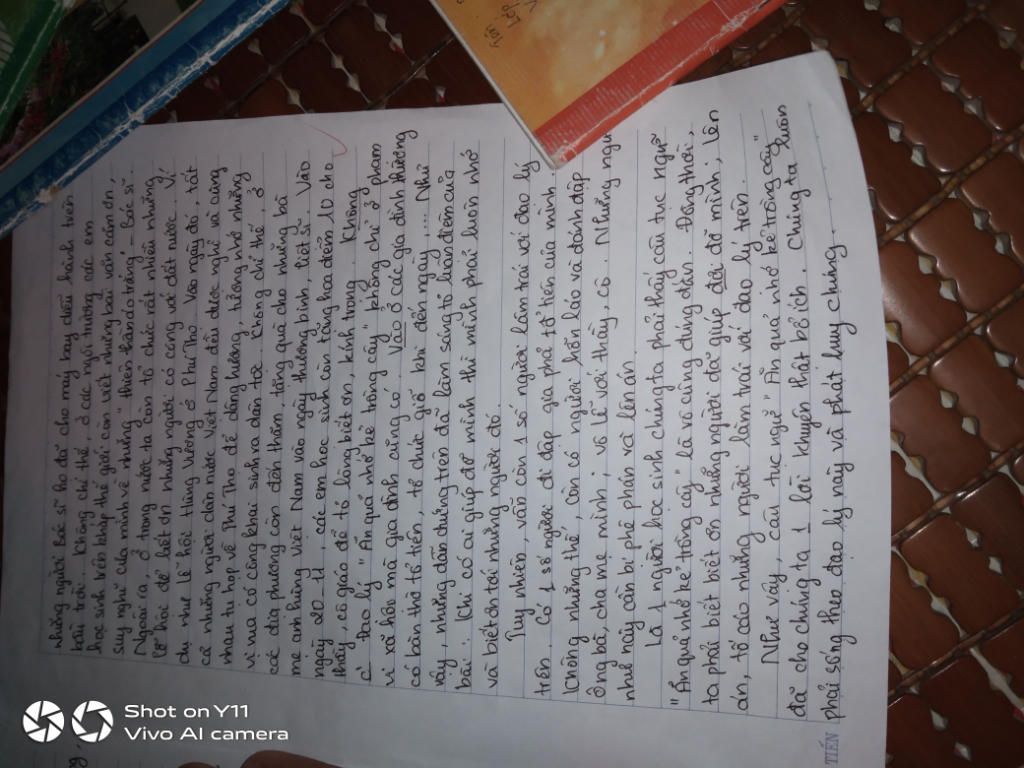 những người Bác sĩ họ đã cho máy bay diễu hành trên
bầu trời. Không chỉ thế, ở các ngôi trường các em
học sinh trên khắp thế giới còn viết những bài văn cảm ơn,
suy nghĩ của mình về những "thiên thần áo trắng" - Bác sĩ.
Ngoài ra, ở trong nước ta còn tổ chức rất nhiều những
lễ hội để biết ơn những người có công với đất nước. Ví
dụ như lễ hội Hùng Vương ở Phú Thọ. Vào ngày đó, tất
cả những người dân nước Việt Nam đều được nghỉ và cùng
nhau tụ họp về Phú Thọ để dâng hương, tưởng nhớ những
vị vua có công khai sinh ra dân tộc. Chẳng chỉ thế, ở
các địa phương còn đến thăm, tặng quà cho những bà
mẹ anh hùng Việt Nam vào ngày thương binh, liệt sĩ. Vào
ngày 20-11, các em học sinh còn tặng hoa điểm 10 cho
thầy, cô giáo để tỏ lòng biết ơn, kính trọng. Không
Đạo lý "Ăn quả nhớ kẻ trồng cây" không chỉ ở phạm
vi xã hội mà gia đình cũng có. Vào ở các gia đình thường
có bàn thờ tổ tiên, tổ chức giỗ khi đến ngày,... Như
vậy, những dẫn chứng trên đã làm sáng tỏ luận điểm của
bài: Khi có ai giúp đỡ mình thì mình phải luôn nhớ
và biết ơn tới những người đó.
Tuy nhiên, vẫn còn 1 số người làm trái với đạo lý
trên. Có 1 số người đi đập gia phả tổ tiên của mình.
Không những thế, còn có người hỗn láo và đánh đập
ông bà, cha mẹ mình, vô lễ với thầy, cô. Những ngư
như này cần bị phê phán và lên án.
Là 1 người học sinh chúng ta phải thấy câu tục ngữ
"Ăn quả nhớ kẻ trồng cây" là vô cùng đúng đắn. Đồng thời,
ta phải biết ơn những người đã giúp đỡ mình; lên
án, tố cáo những người làm trái với đạo lý trên.
Như vậy, câu tục ngữ "Ăn quả nhớ kẻ trồng cây"
đã cho chúng ta 1 lời khuyên thật bổ ích. Chúng ta luôn
phải sống theo đạo lý này và phát huy chúng.
TIẾN
Shot on Y11
Vivo AI camera